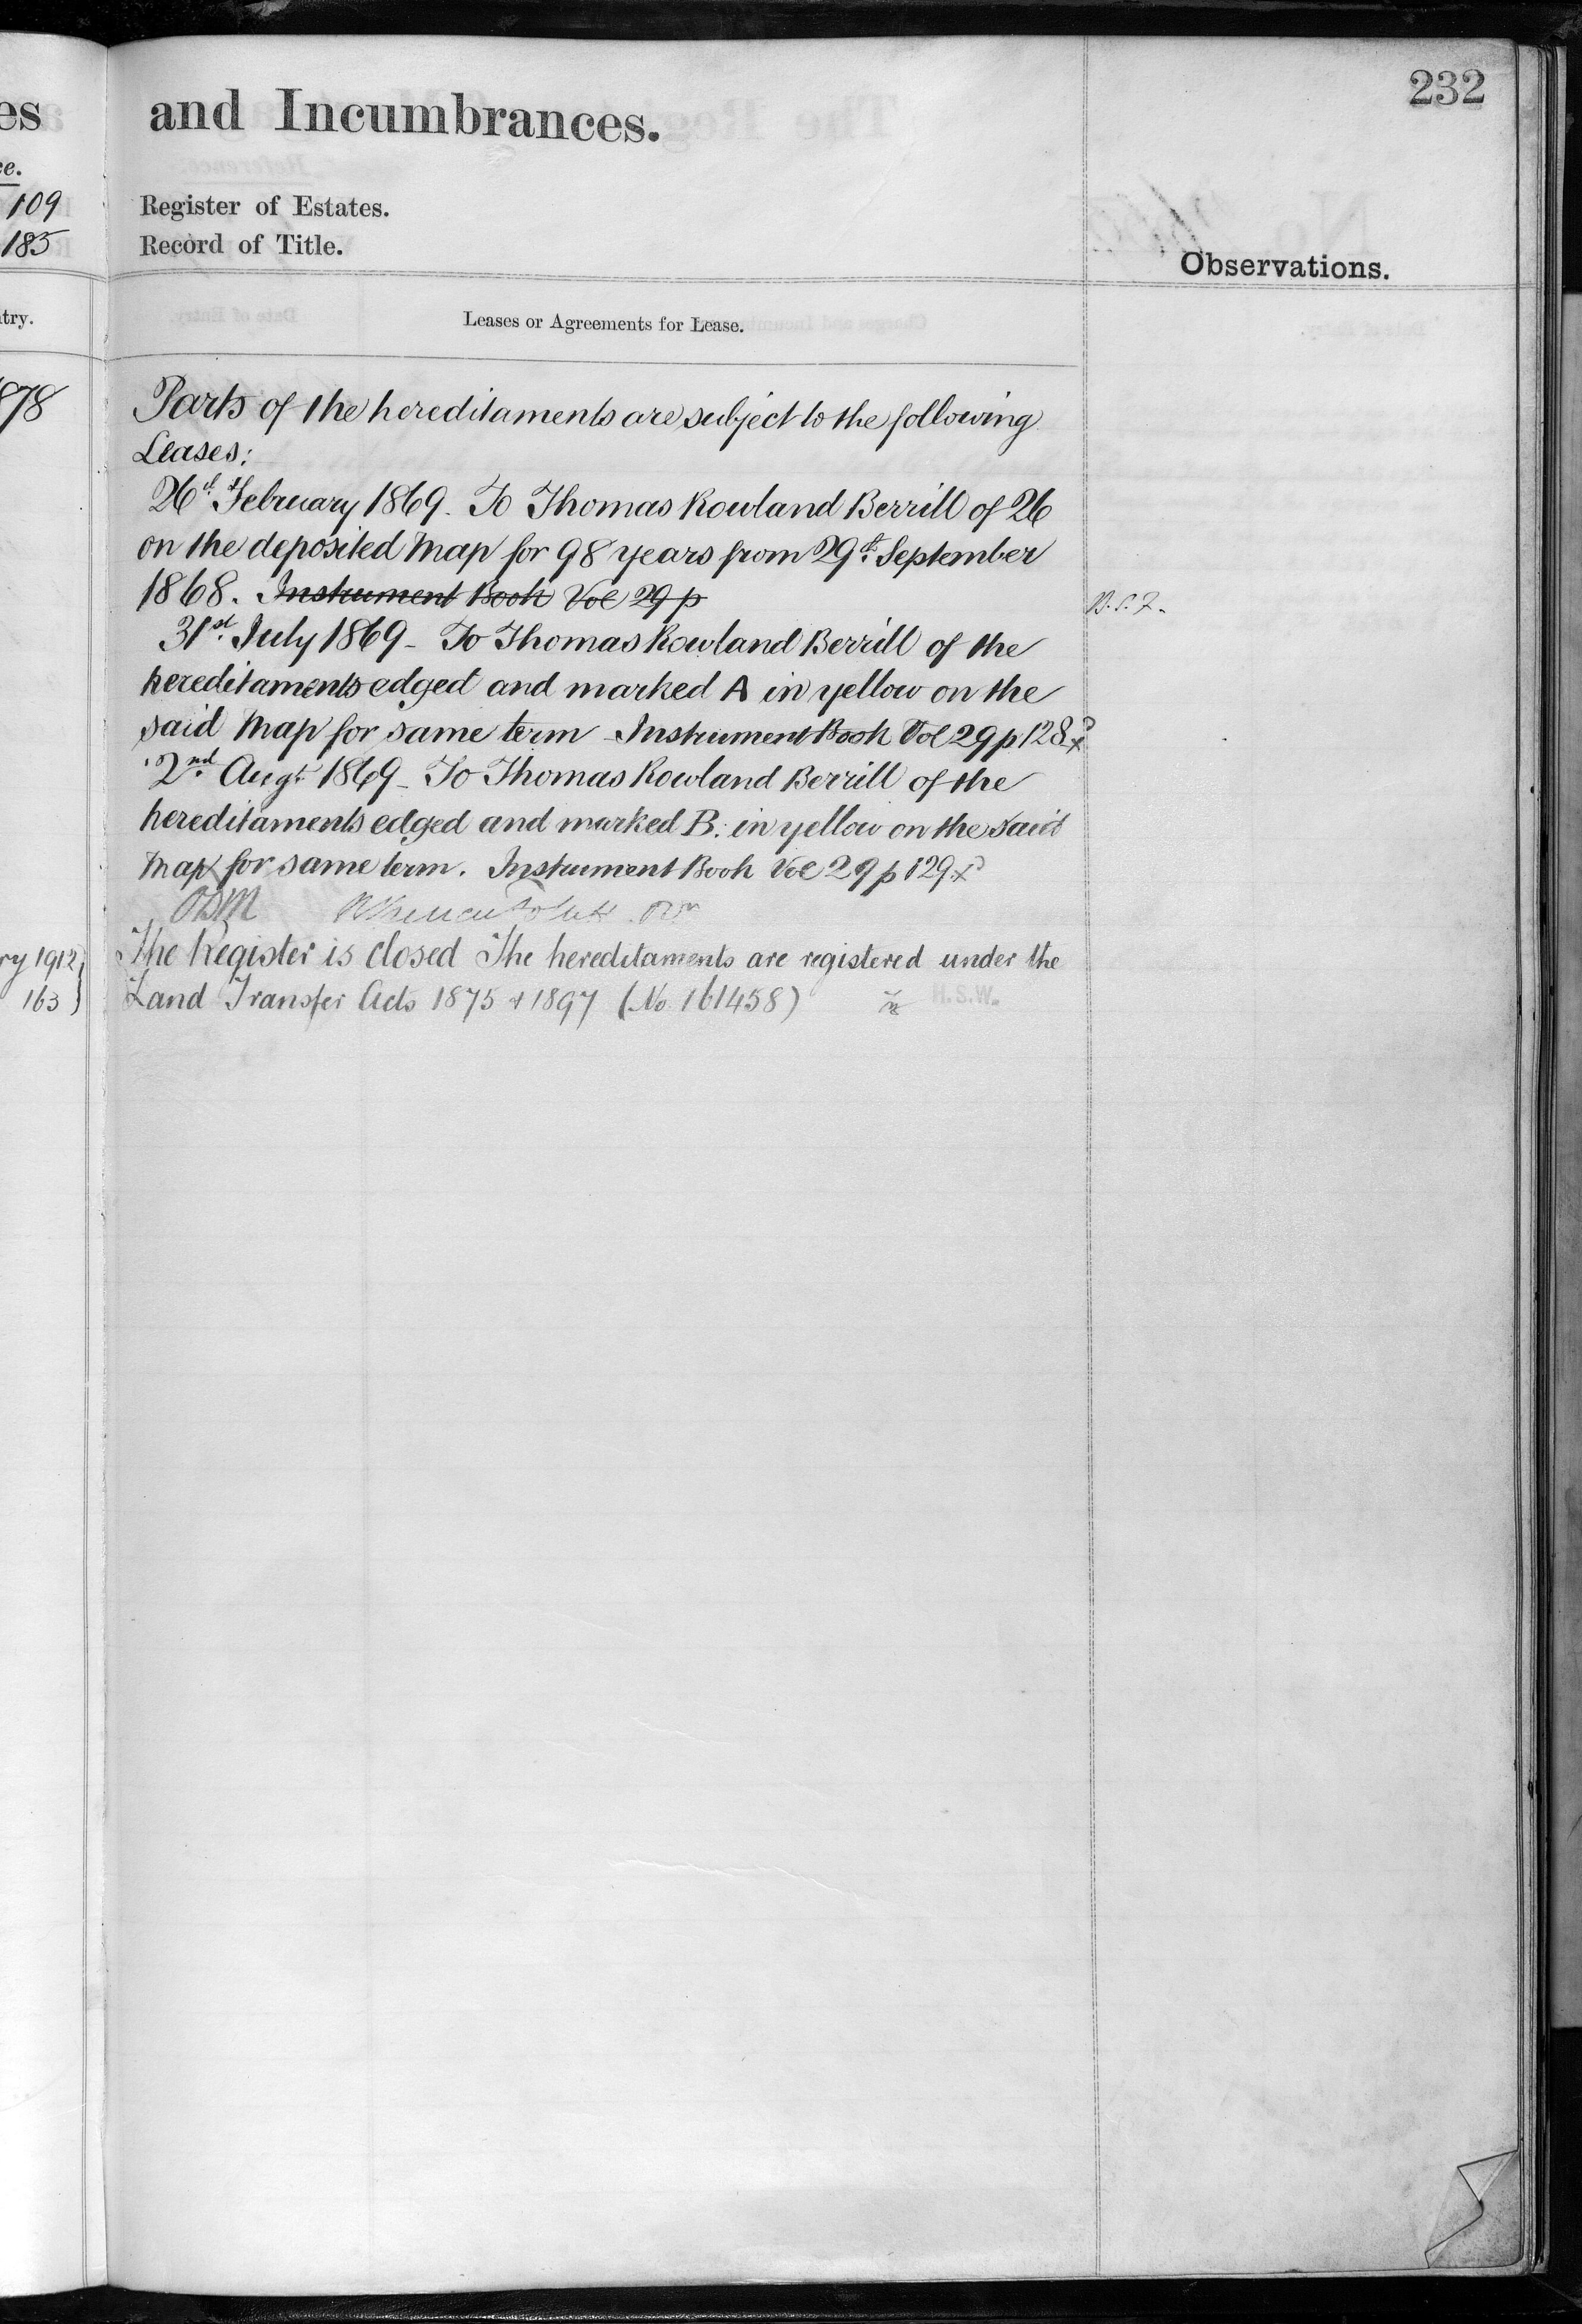 232
es and Incumbrances.
ce.
109 Register of Estates.
185 Record of Title.
Observations.
try. Leases or Agreements for Lease.
878 Parts of the hereditaments are subject to the following
Leases:
26th February 1869. To Thomas Rowland Berrill of 26
on the deposited Map for 98 years from 29th September
1868. Instrument Book Vol 29 p
31st July 1869 - To Thomas Rowland Berrill of the
hereditaments edged and marked A in yellow on the
said Map for same term - Instrument Book Vol 29 p 128
2nd Augt. 1869 - To Thomas Rowland Berrill of the
hereditaments edged and marked B. in yellow on the said
Map for same term. Instrument Book Vol 29 p 129
ry 1912 The Register is closed The hereditaments are registered under the
163 Land Transfer Acts 1875 & 1897 (No 161458) H.S.W.